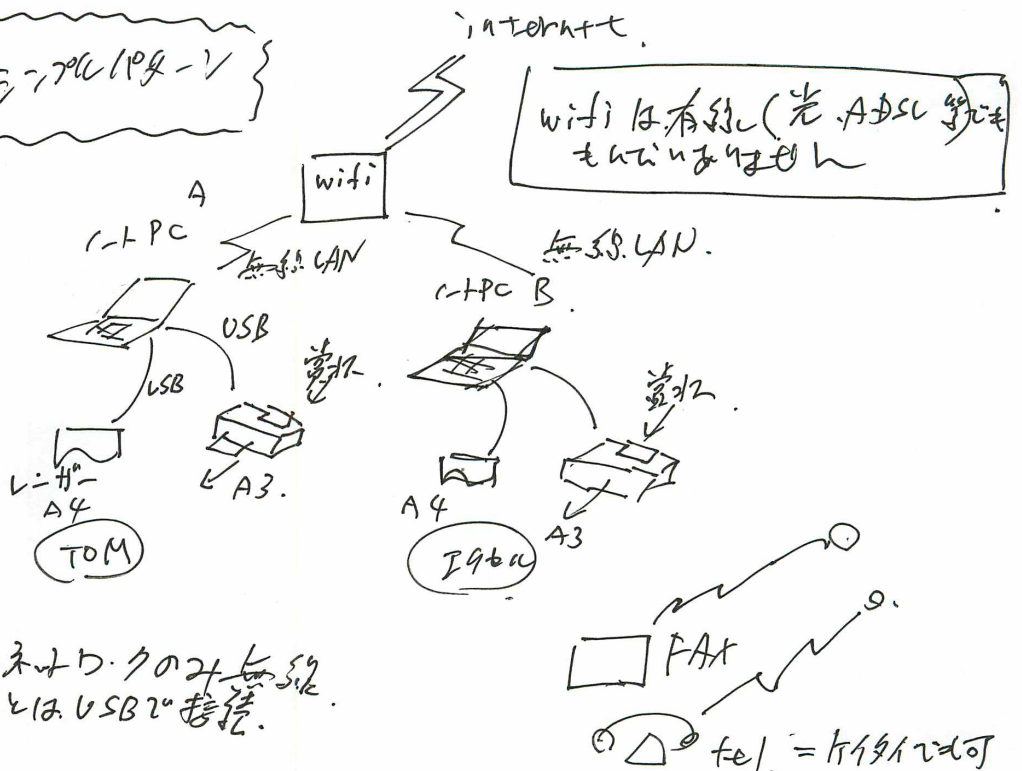 ンプルパターン
internet.
wifiは有線(光、ADSL等)でも
もんだいありません
wifi
A
ノートPC
無線LAN
無線LAN.
ノートPC B.
USB
USB
賞状.
賞状.
レーザー
A4
A3.
A4
A3
TOM
ネットワークのみ無線.
とはUSBで接続.
FAX
tel = ケイタイでも可